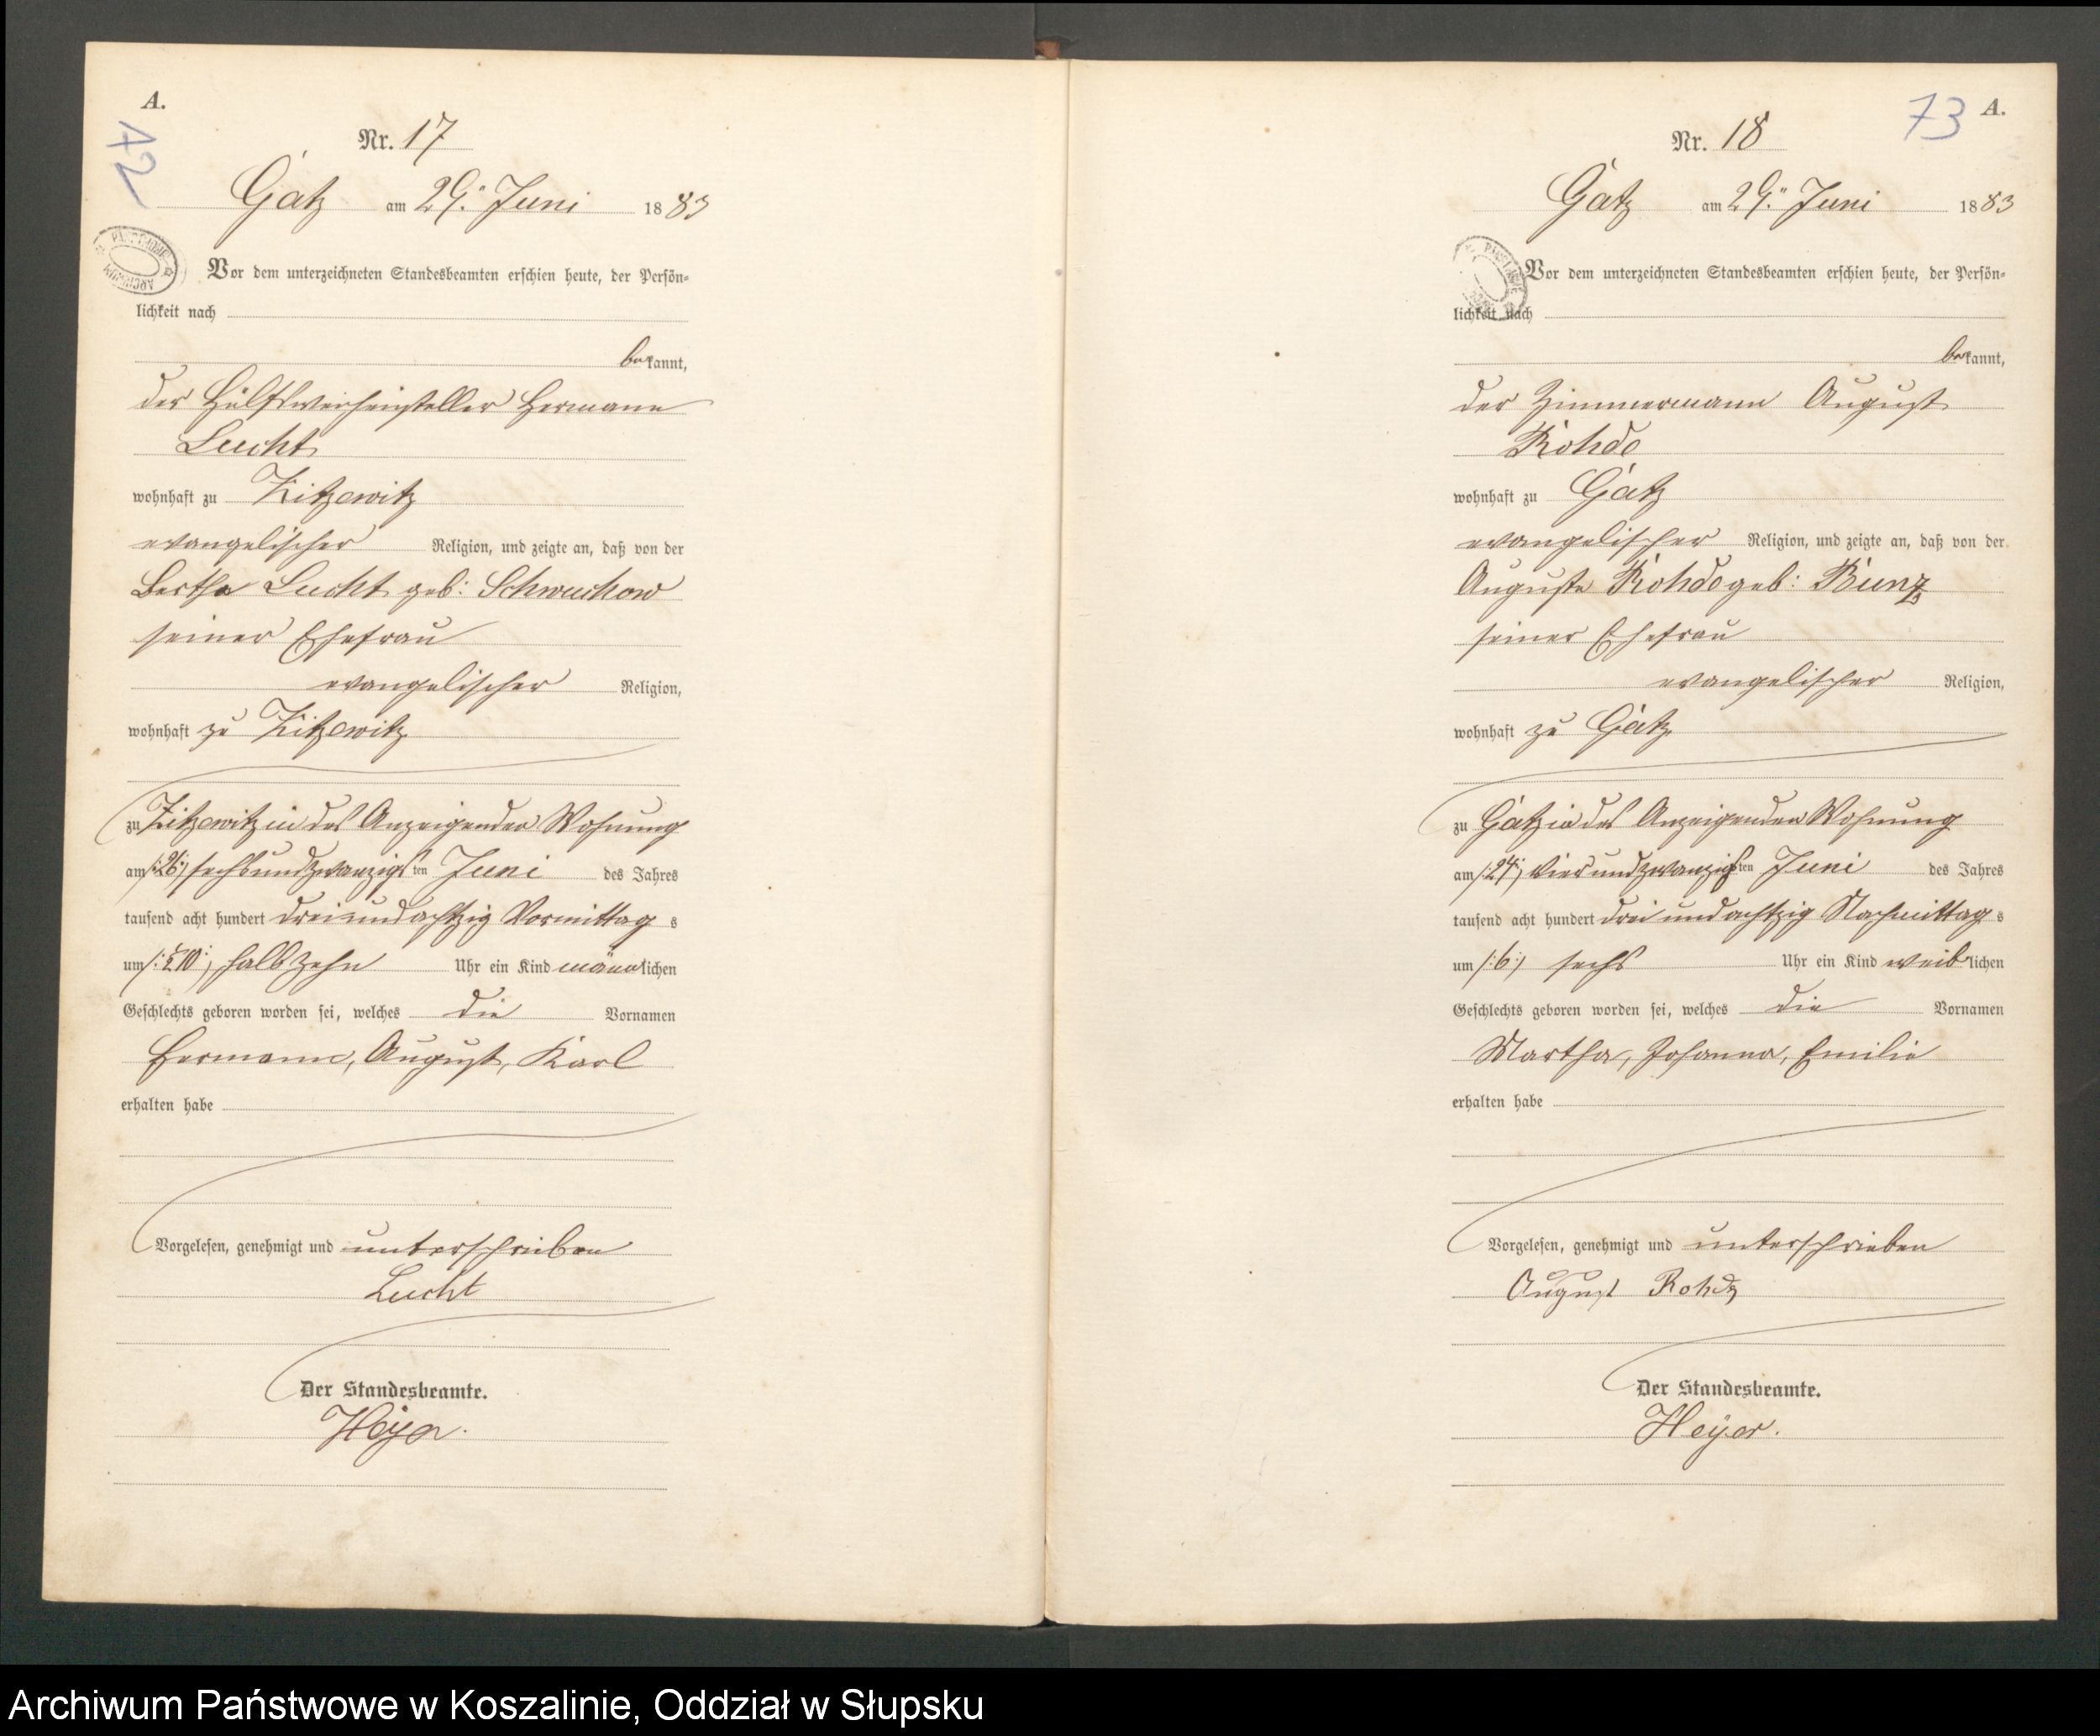 A.
72
Nr. 17
Gatz am 29. Juni 1883
Vor dem unterzeichneten Standesbeamten erschien heute, der Persön-
lichkeit nach
bekannt,
der Hülfsweichensteller Hermann
Lucht
wohnhaft zu Zitzewitz
evangelischer Religion, und zeigte an, daß von der
Bertha Lucht geb: Schwuchow
seiner Ehefrau
evangelischer Religion,
wohnhaft zu Zitzewitz
zu Zitzewitz in des Anzeigenden Wohnung
am /:26:/ sechsundzwanzigsten Juni des Jahres
tausend acht hundert dreiundachtzig Vormittags
um /:½10:/ halb zehn Uhr ein Kind männlichen
Geschlechts geboren worden sei, welches die Vornamen
Hermann, August, Karl
erhalten habe
Vorgelesen, genehmigt und unterschrieben
Lucht
Der Standesbeamte.
Heyer.
73 A.
Nr. 18
Gatz am 29. Juni 1883
Vor dem unterzeichneten Standesbeamten erschien heute, der Persön-
lichkeit nach
bekannt,
der Zimmermann August
Rohde
wohnhaft zu Gatz
evangelischer Religion, und zeigte an, daß von der
Auguste Rohde geb: Bunz
seiner Ehefrau
evangelischer Religion,
wohnhaft zu Gatz
zu Gatz in des Anzeigenden Wohnung
am /:24:/ vierundzwanzigsten Juni des Jahres
tausend acht hundert drei und achtzig Nachmittags
um /:6:/ sechs Uhr ein Kind weiblichen
Geschlechts geboren worden sei, welches die Vornamen
Martha, Johanna, Emilie
erhalten habe
Vorgelesen, genehmigt und unterschrieben
August Rohde
Der Standesbeamte.
Heyer.
Archiwum Państwowe w Koszalinie, Oddział w Słupsku